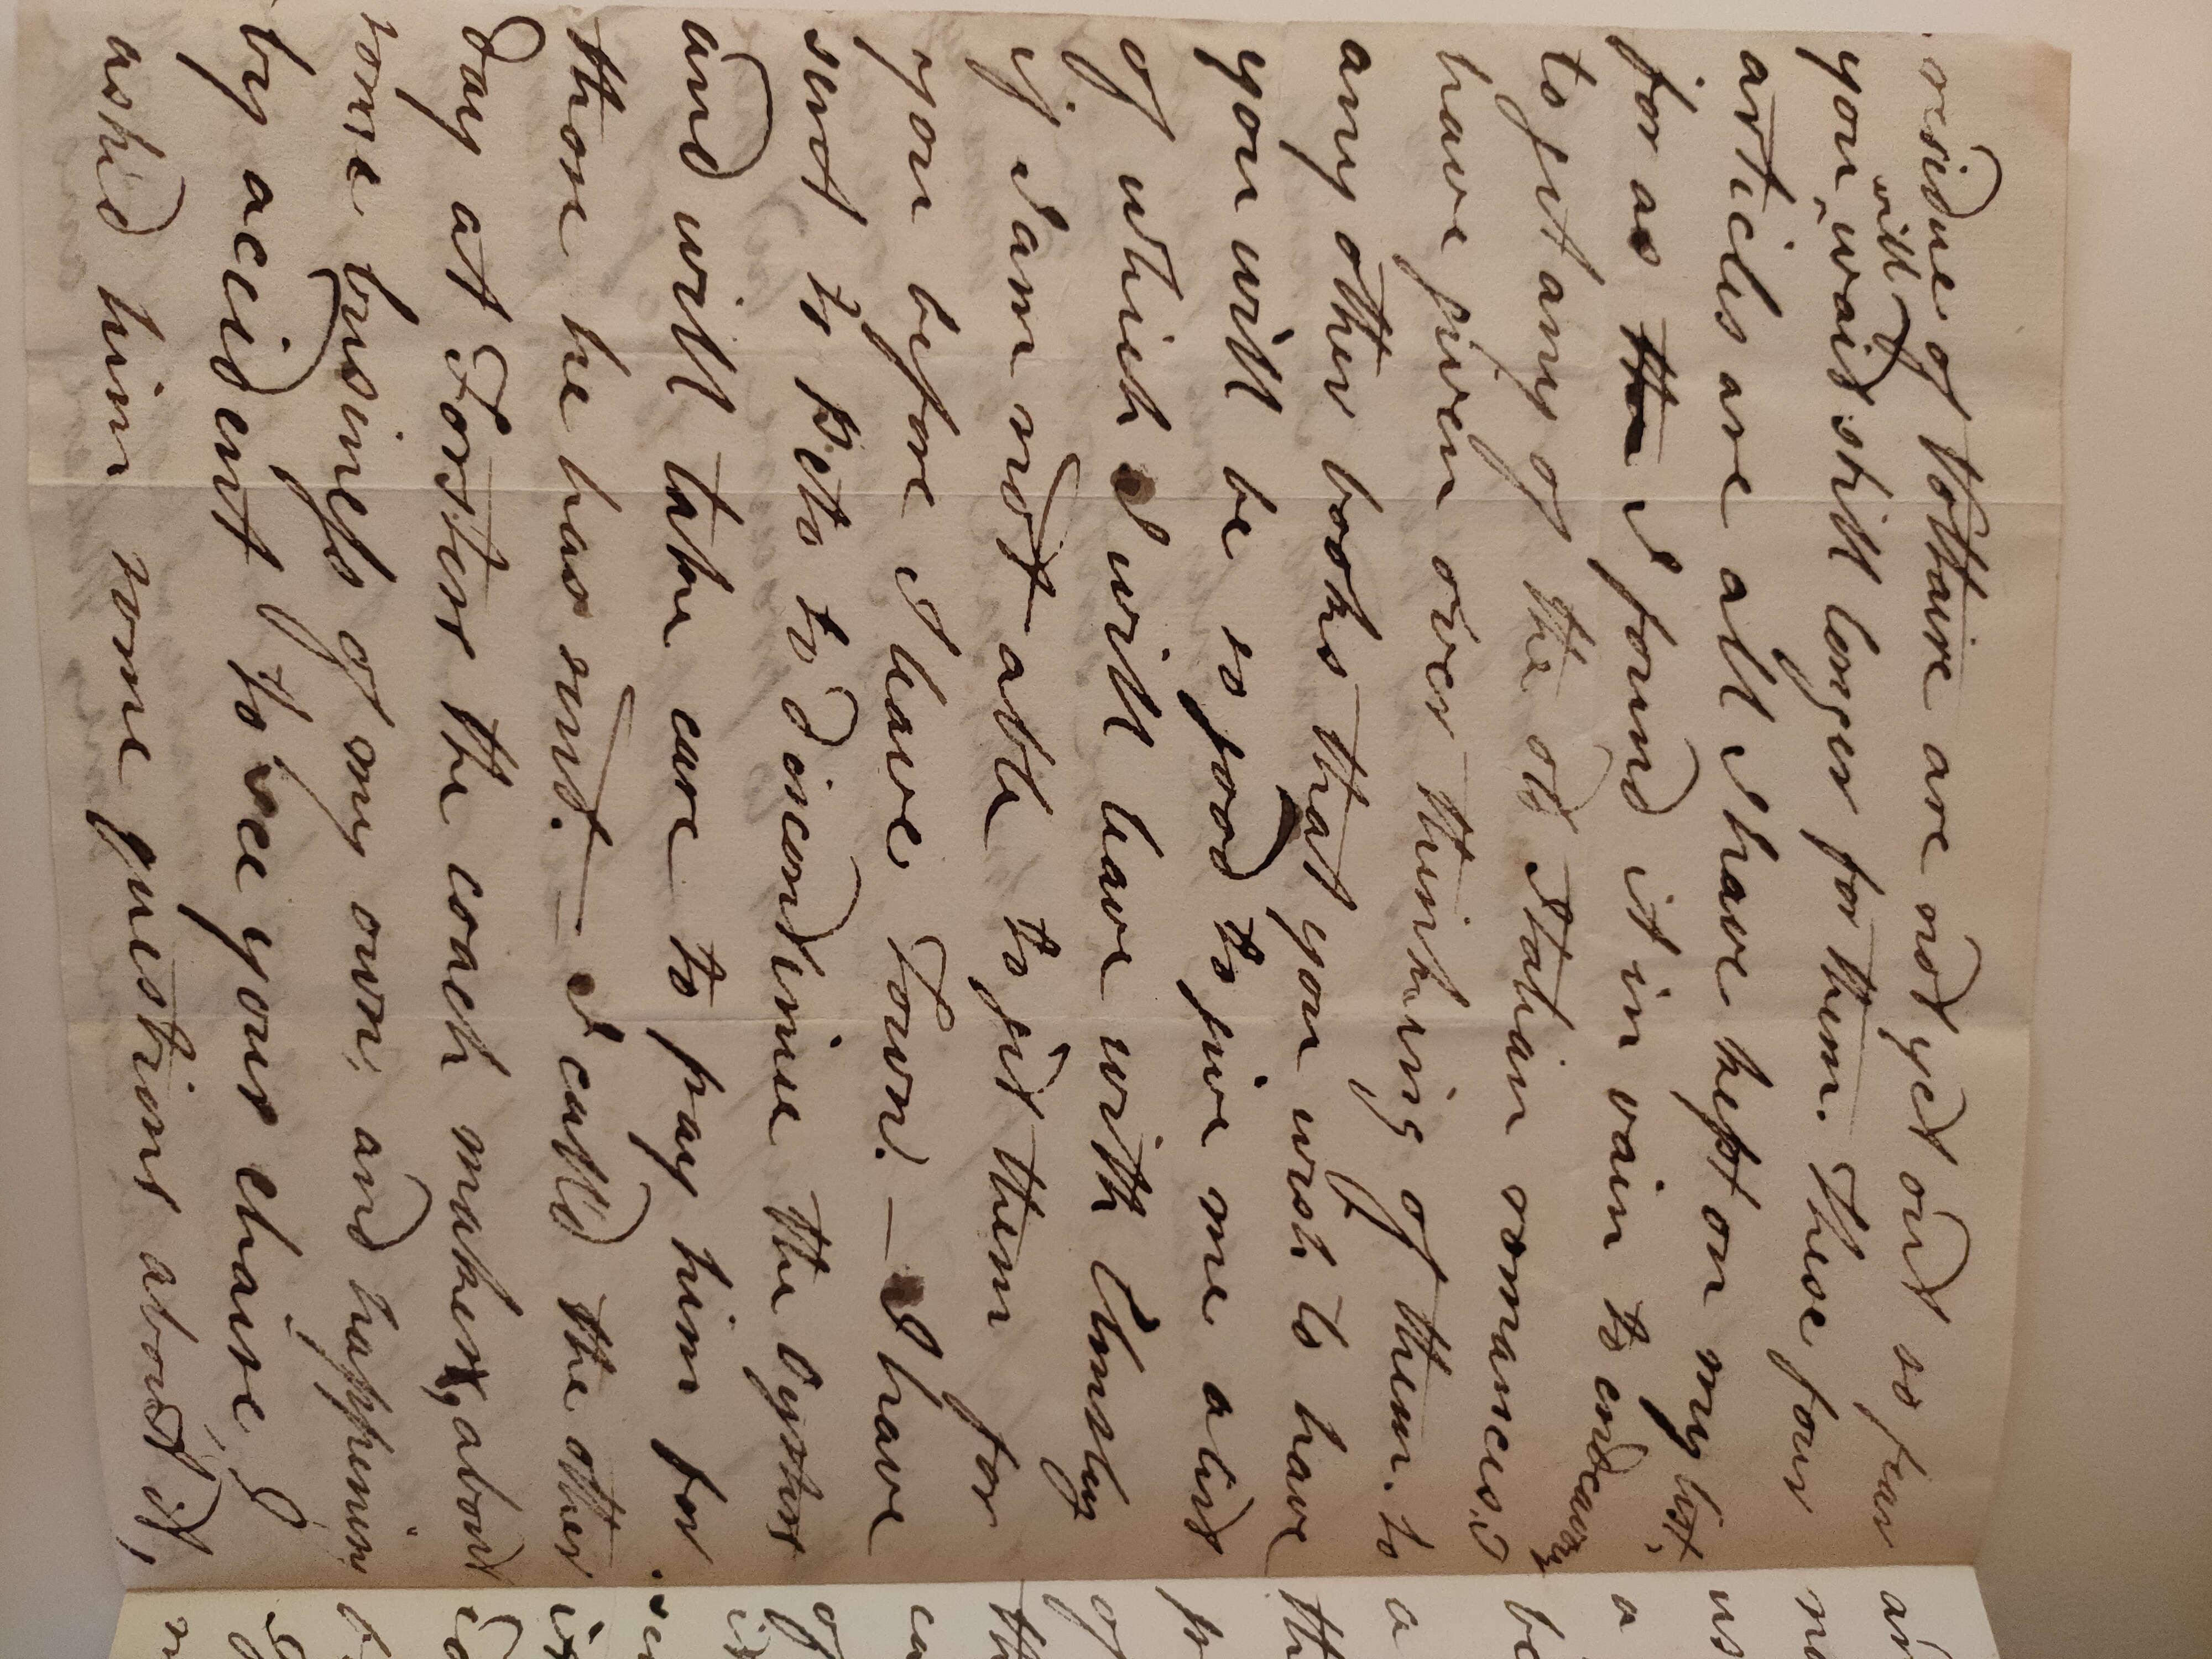 residue of Voltaire are not yet out so fear
you will wait still longer for them. These four
articles are all I have kept on my list,
for as I found it in vain to endeavour
to get any of the old Italian romances, I
have given over thinking of them. to
any other books that you wish to have
you will be so good to give me a list
of which I will leave with Elmsley
if I am not able to get them for
you before I leave Town. — I have
sent to Peto to discontinue the Oysters
and will take care to pay him for
those he has sent. — I call'd the other
day at Forsters the coach maker, about
some business of my own, and happening
by accident to see your chaise, I
ask'd him some questions about it,
a
be
a
th
of
th
of